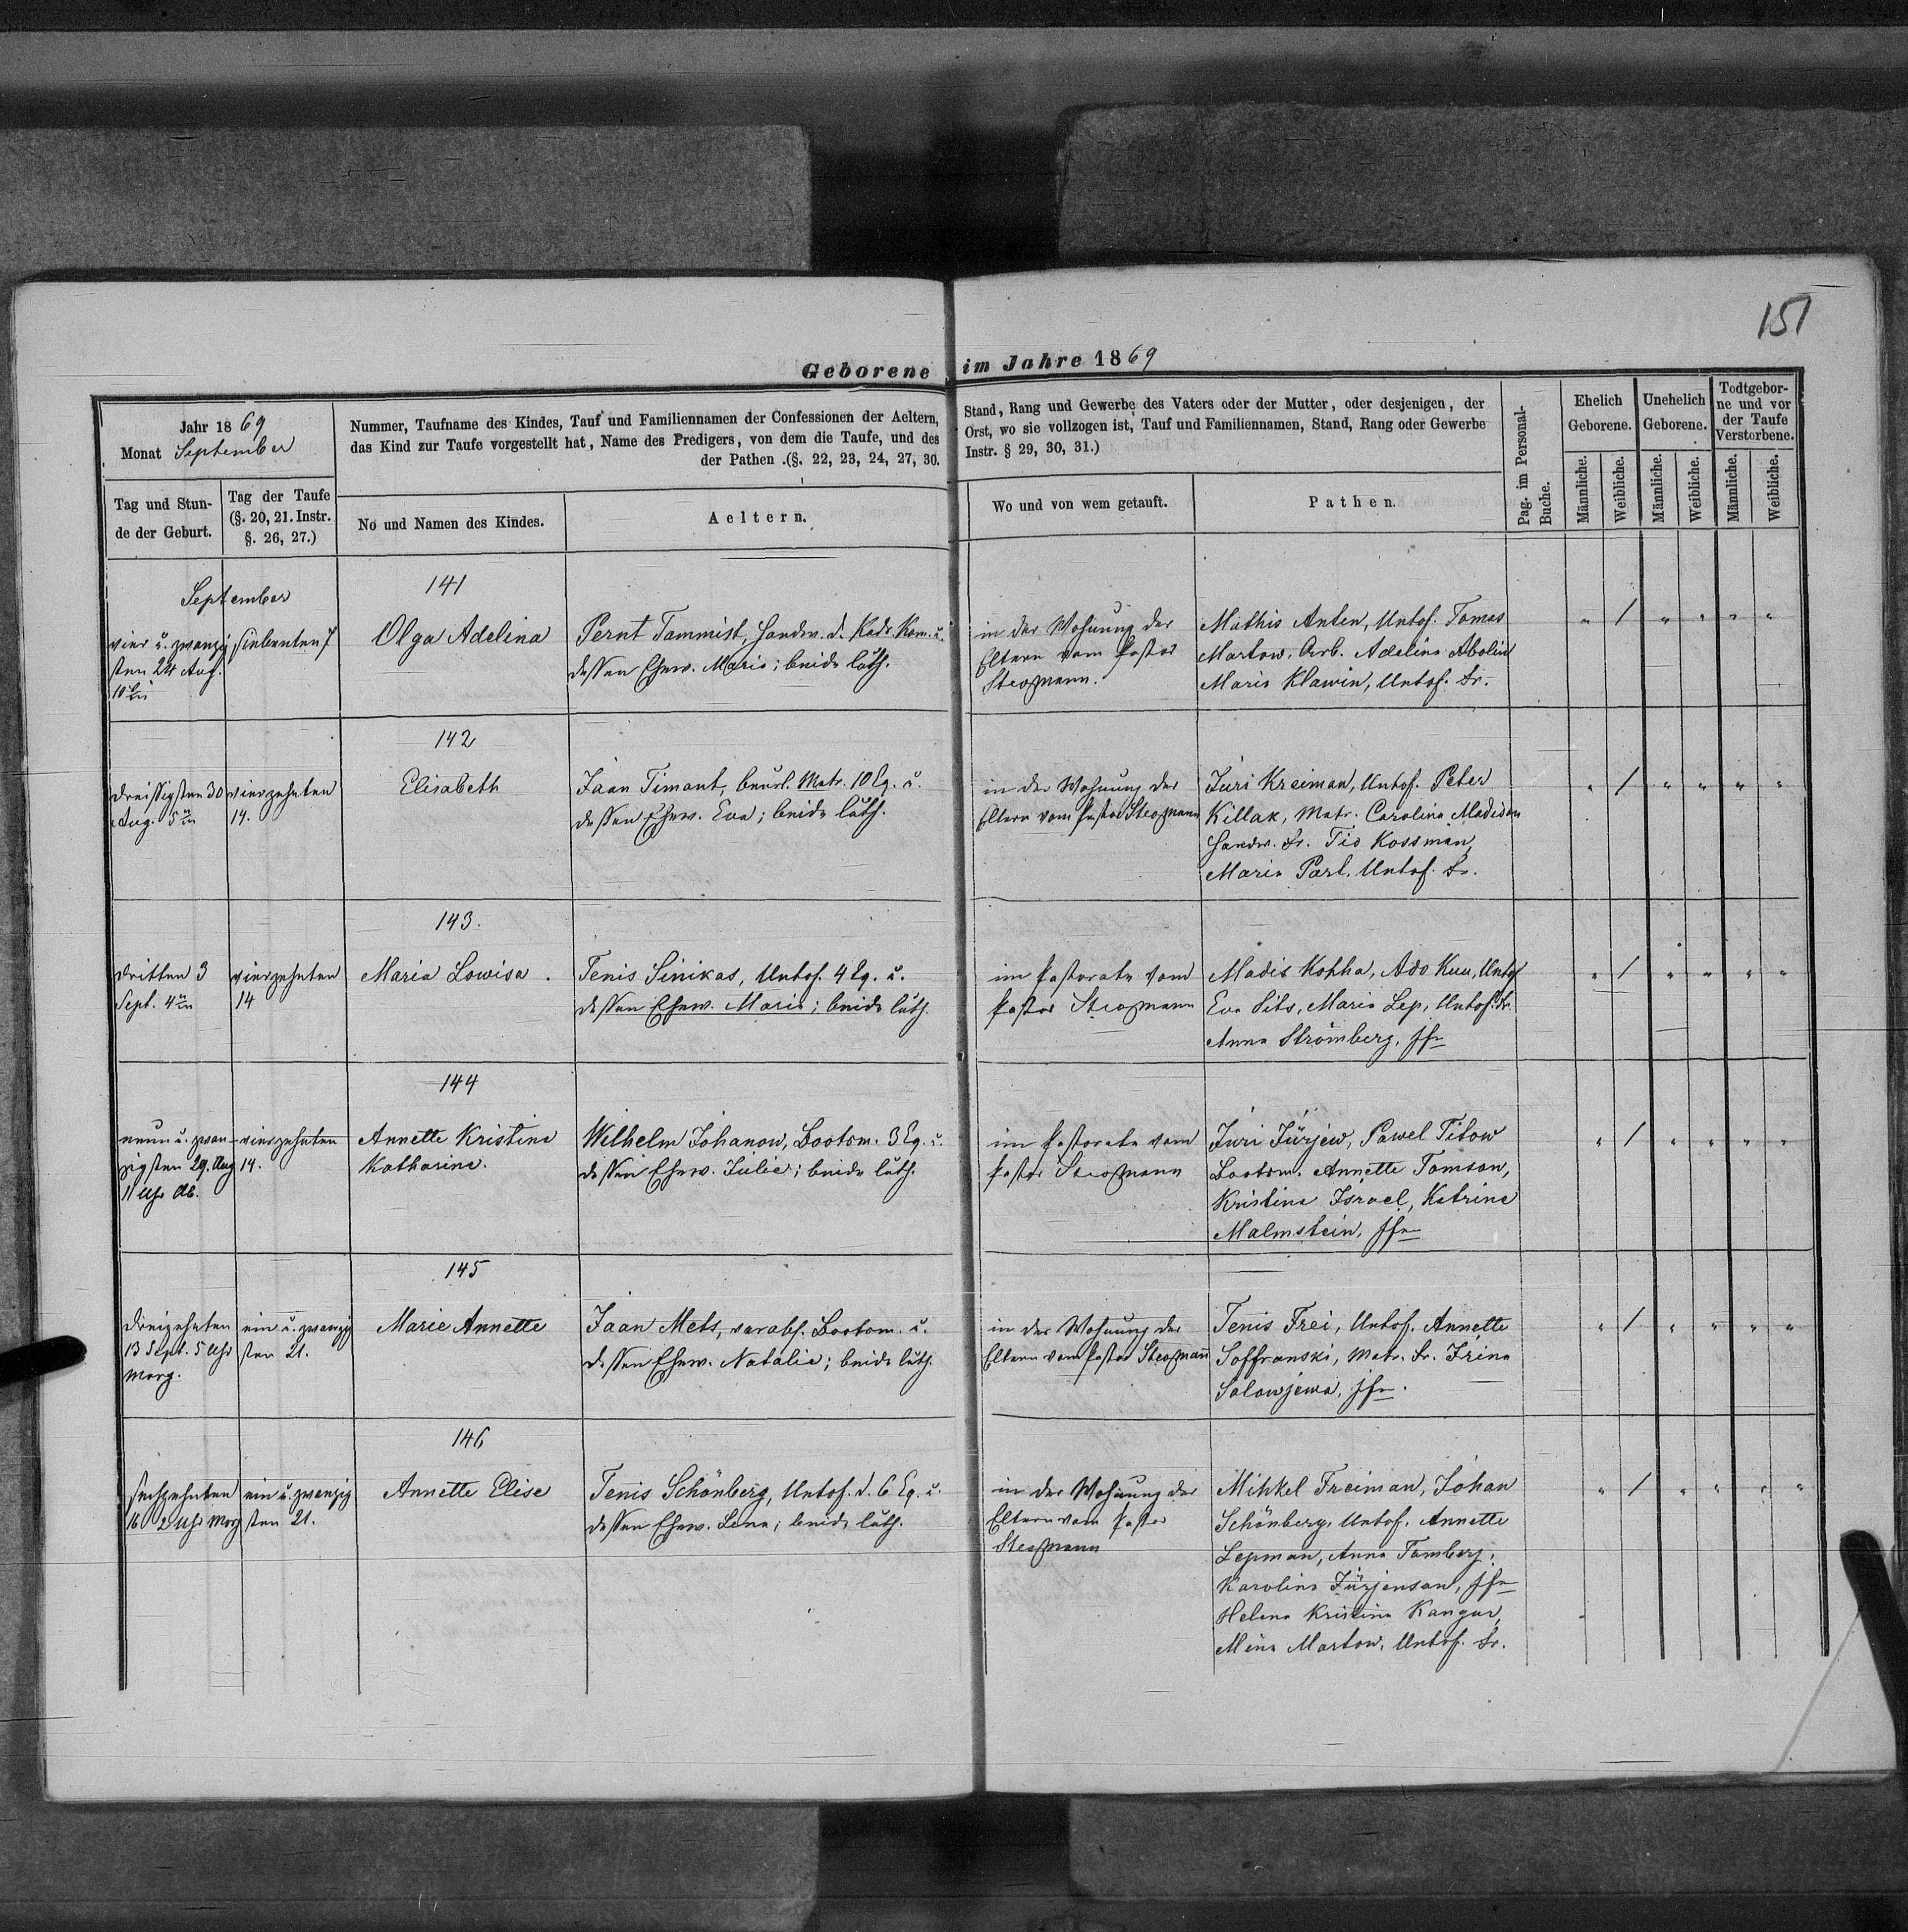 151
Geborene im Jahre 1869
Jahr 1869
Monat September
Nummer, Taufname des Kindes, Tauf und Familiennamen der Confessionen der Aeltern,
das Kind zur Taufe vorgestellt hat, Name des Predigers, von dem die Taufe, und des
der Pathen .(§. 22, 23, 24, 27, 30.
Stand, Rang und Gewerbe des Vaters oder der Mutter, oder desjenigen, der
Orst, wo sie vollzogen ist, Tauf und Familiennamen, Stand, Rang oder Gewerbe
Instr. § 29, 30, 31.)
Pag. im Personal-
Buche.
Ehelich
Geborene.
Unehelich
Geborene.
Todtgebor-
ne und vor
der Taufe
Verstorbene.
Tag und Stun-
de der Geburt.
Tag der Taufe
(§. 20, 21. Instr.
§. 26, 27.)
No und Namen des Kindes.
Aeltern.
Wo und von wem getauft.
Pathen.
Männliche.
Weibliche.
Männliche.
Weibliche.
Männliche.
Weibliche.
September
141
vier u. zwanzig
sten 24 Aug.
siebenten 7
Olga Adelina
Pernt Tammist, Handw. d. Kadr. Kom. u.
dessen Ehew. Marie; beide luth.
in der Wohnung der
Eltern vom Pastor
Mathis Anten, Untof. Tomas
Martow. Arb. Adelina Abolin
Marie Klawin, Untof. Fr.
" / " " " "
142
dreissigsten 30
Aug. 5
vierzehnten
14.
Elisabeth
Jaan Timant, beurl. Matr. 10 Eq. u.
dessen Ehew. Eva; beide luth.
in der Wohnung der
Eltern vom Pastor
Juri Kreiman, Untof. Peter
Killak, Matr. Carolina Madison
Handw. Fr. Tio Kossman,
Maria Parl, Untof. Fr.
" / " " " "
143.
dritten 3
Sept. 4
vierzehnten
14
Maria Lowisa.
Tenis Sinikas, Untof. 4 Eq. u.
dessen Ehew. Marie; beide luth.
im Pastorate vom
Pastor
Madis Kohha, Ado Kuu, Untof
Eva Sits, Maria Lep, Untof. Fr.
Anna Strömberg, Jfr
" / " " " "
144
neun u. zwan-
zigsten 29. Aug
11 Uhr Ab.
vierzehnten
14.
Annette Kristine
Katharine.
Wilhelm Johanow, Bootsm. 3 Eq. u.
dessen Ehew. Julie; beide luth.
im Pastorate vom
Pastor
Juri Jürjew, Pawel Titow
Bootsm. Annette Tomson,
Kristine Israel, Katrine
Malmstein, Jfr
" / " " " "
145
dreizehnten
13 Sept. 5 Uhr
Morg.
ein u. zwanzig
sten 21.
Marie Annette
Jaan Mets, verabs. Bootsm. u.
dessen Ehew. Natalie; beide luth.
in der Wohnung der
Eltern vom Pastor
Tenis Frei, Untof. Annette
Soffranski, Matr. Fr. Irina
Solowjewa, Jfr.
" / " " " "
146
sechzehnten
16 2 Uhr Morg
ein u. zwanzig
sten 21.
Annette Elise
Tenis Schönberg, Untof. d. 6 Eq. u.
dessen Ehew. Lena; beide luth.
in der Wohnung der
Eltern vom Pastor
Mihkel Freiman, Johan
Schönberg, Untof. Annette
Lepman, Anna Tomberg,
Karoline Jürjenson, Jfr
Helena Kristine Kangur,
Mina Martow, Untof. Fr.
" / " " " "